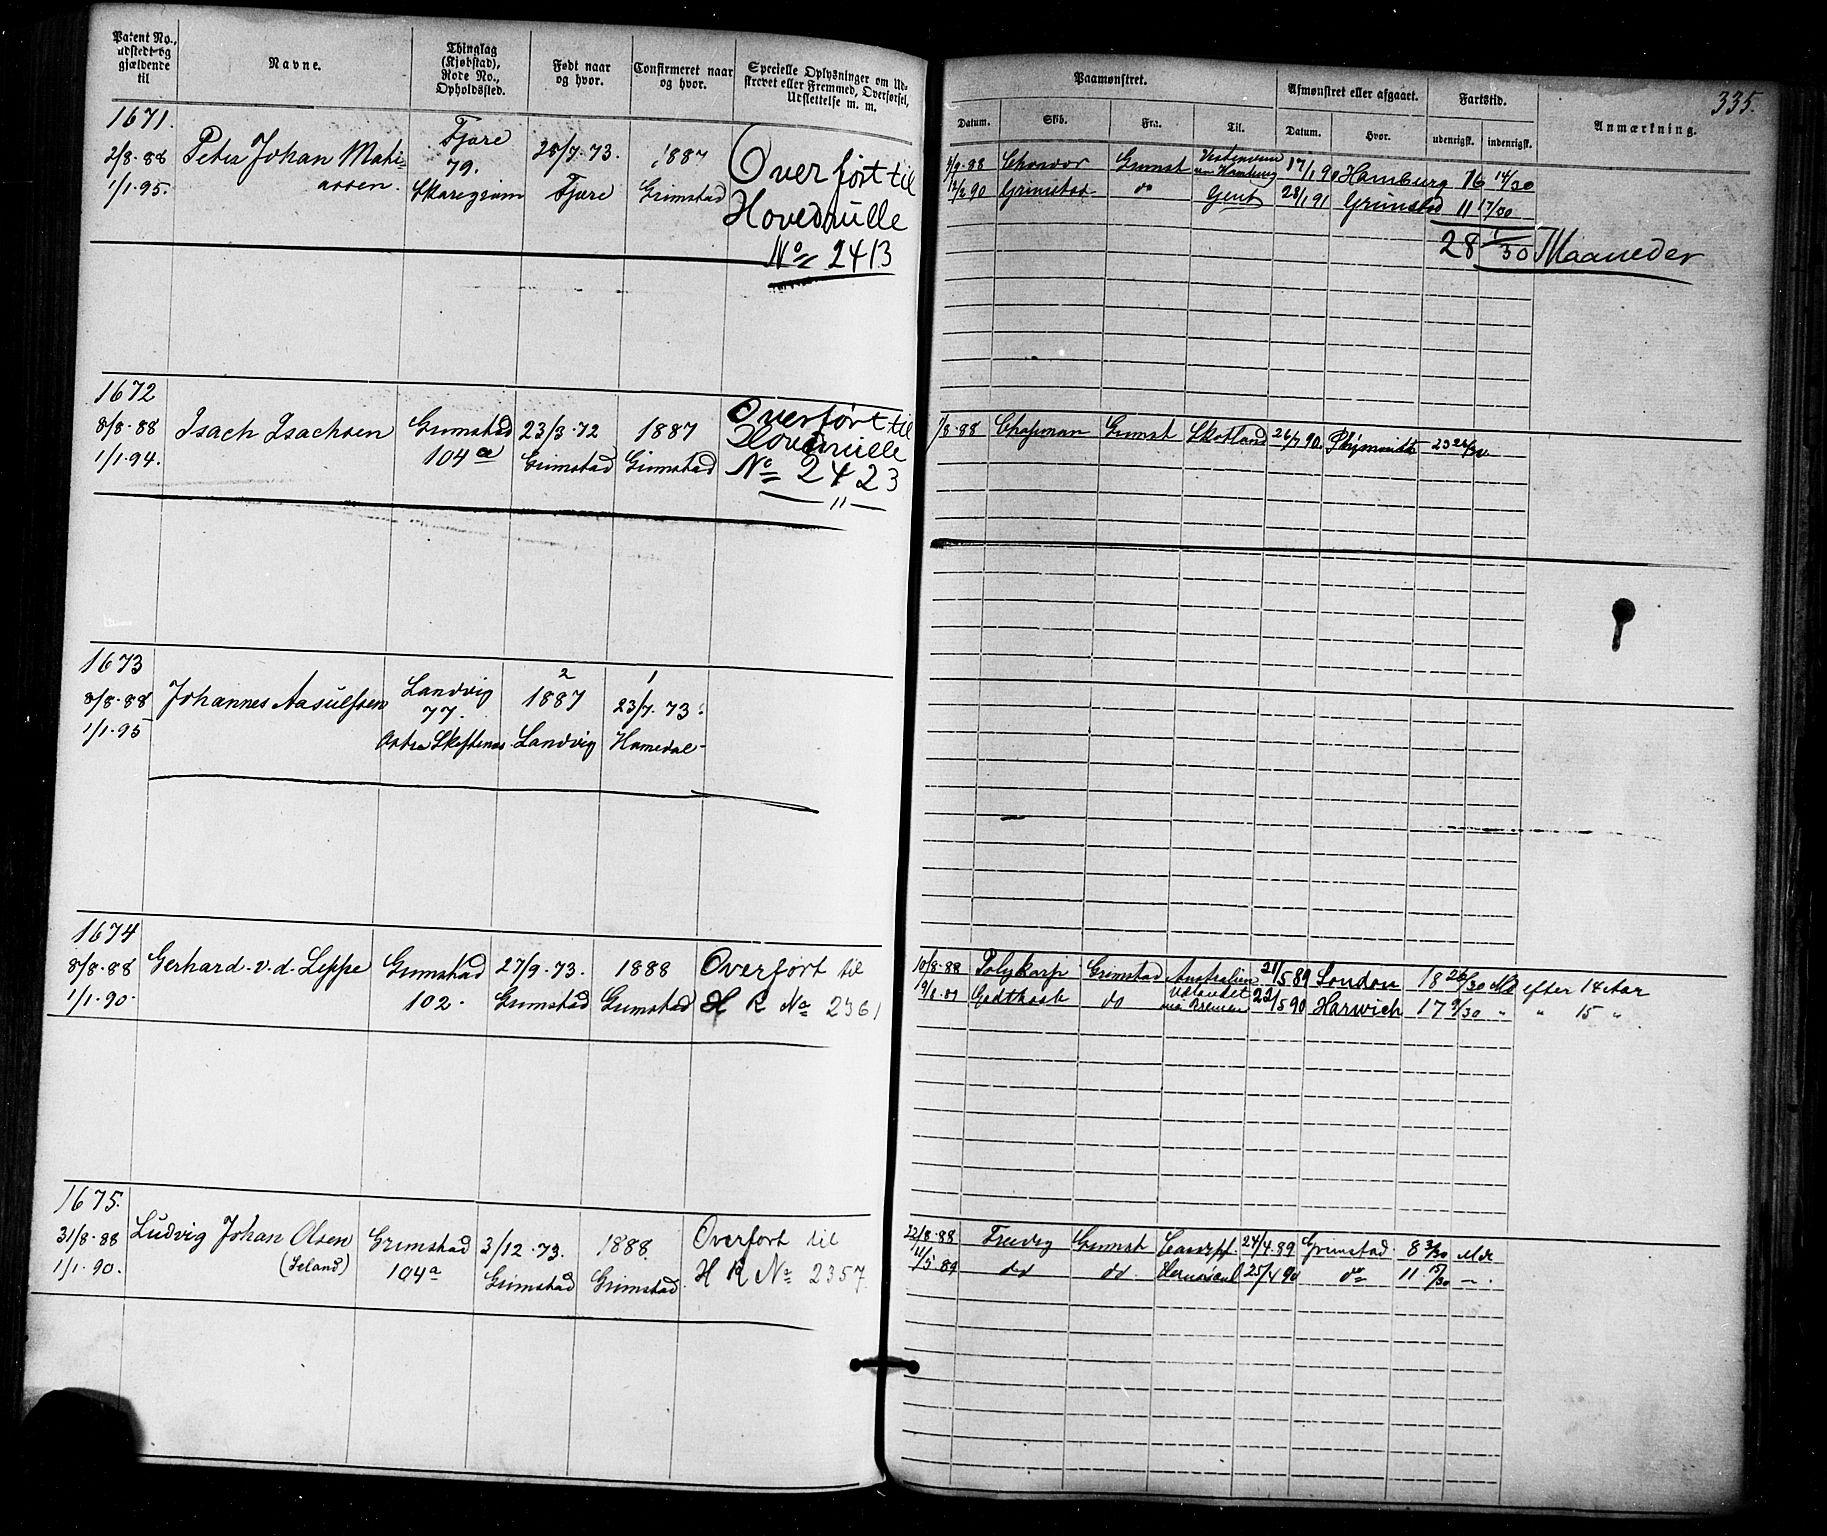 Patent No., udstedt og gjældende til
Navne.
Thinglag (Kjøbstad), Rode No., Opholdssted.
Født naar og hvor.
Confirmeret naar og hvor.
Specielle Oplysninger om Udskrevet eller Fremmed, Overførsel, Udslettelse m. m.
Paamønstret.
Afmønstret eller afgaaet.
Fartstid.
335.
Datum.
Skib.
Fra.
Til.
Datum.
Hvor.
udenrigsk.
indenrigsk.
Anmærkning.
1671.
2/8-88
1/1.95.
Peter Johan Mathi=
assen.
Fjære
79.
Fjære
1887
Grimstad
Overført til
Hovedrulle
No 2413
Grimst
17/1 90 Hamburg 16 14/30
Grimstad do Gent 28/1 91 Grimstad 11 17/30
28 1/30 Maaneder
1672
8/8-88
1/1.94.
Isach Isachsen
Grimstad
104 a
23/3.72
Grimstad
1887
Grimstad
Overført til
Hovedrulle
No 2423
Chapman Grimst Skotland 26/7 90.
1673
8/8-88
1/1.95
Johannes Aasulfsen
Landvig
77.
2
1887
Landvig
1
23/7.73.
Homedal
1674
8/8-88
1/1.90.
Gerhard v. d. Lippe
Grimstad
102.
27/9.73.
Grimstad
1888
Grimstad
Overført til
H R No 2361
10/8-88 Polykarp Grimstad Australien 21/5 89 London 18 26/30 Md efter 14 Aar
Godthaab do Udlandet 22/5 90 Harwich 17 9/30 " " 15 "
1675.
31/8-88
1/1.90.
Ludvig Johan Olsen
(Leland)
Grimstad
104a
3/12.73.
Grimstad
1888
Grimstad.
Overført til
H R No 2357.
22/8-88 Fredvig Grimst 24/4.89 Grimstad. 8 3/30 Mdr
11/5 89 do do. 25/4 90 do 11. 15/30 -.